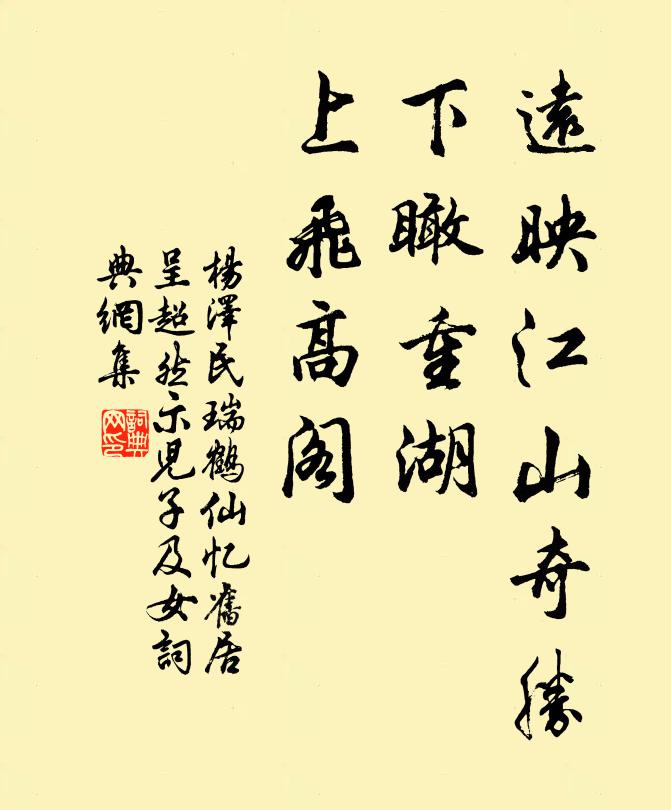 遠映江山奇勝
下瞰重湖
上飛高閣
楊澤民瑞鶴仙忆舊居
呈超然示児子及女詞
典網集
詞典網印